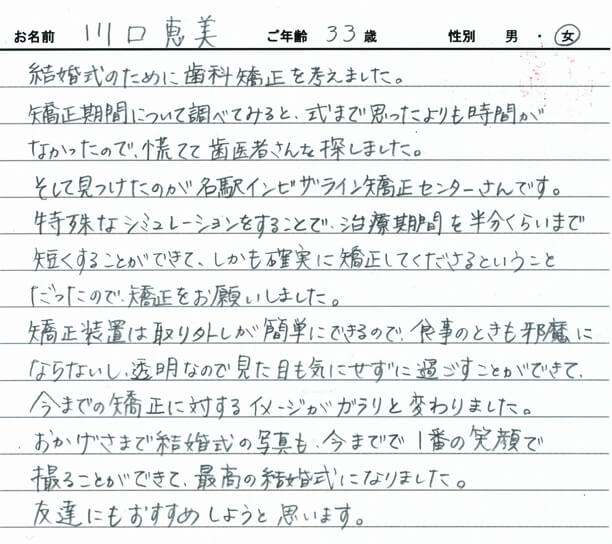 お名前 川口恵美 ご年齢 33歳 性別 男・女
結婚式のために歯科矯正を考えました。
矯正期間について調べてみると、式まで思ったよりも時間が
なかったので、慌てて歯医者さんを探しました。
そして見つけたのが名駅インビザライン矯正センターさんです。
特殊なシミュレーションをすることで、治療期間を半分くらいまで
短くすることができて、しかも確実に矯正してくださるということ
だったので、矯正をお願いしました。
矯正装置は取り外しが簡単にできるので、食事のときも邪魔に
ならないし、透明なので見た目も気にせずに過ごすことができて、
今までの矯正に対するイメージがガラリと変わりました。
おかげさまで結婚式の写真も、今までで1番の笑顔で
撮ることができて、最高の結婚式になりました。
友達にもおすすめしようと思います。